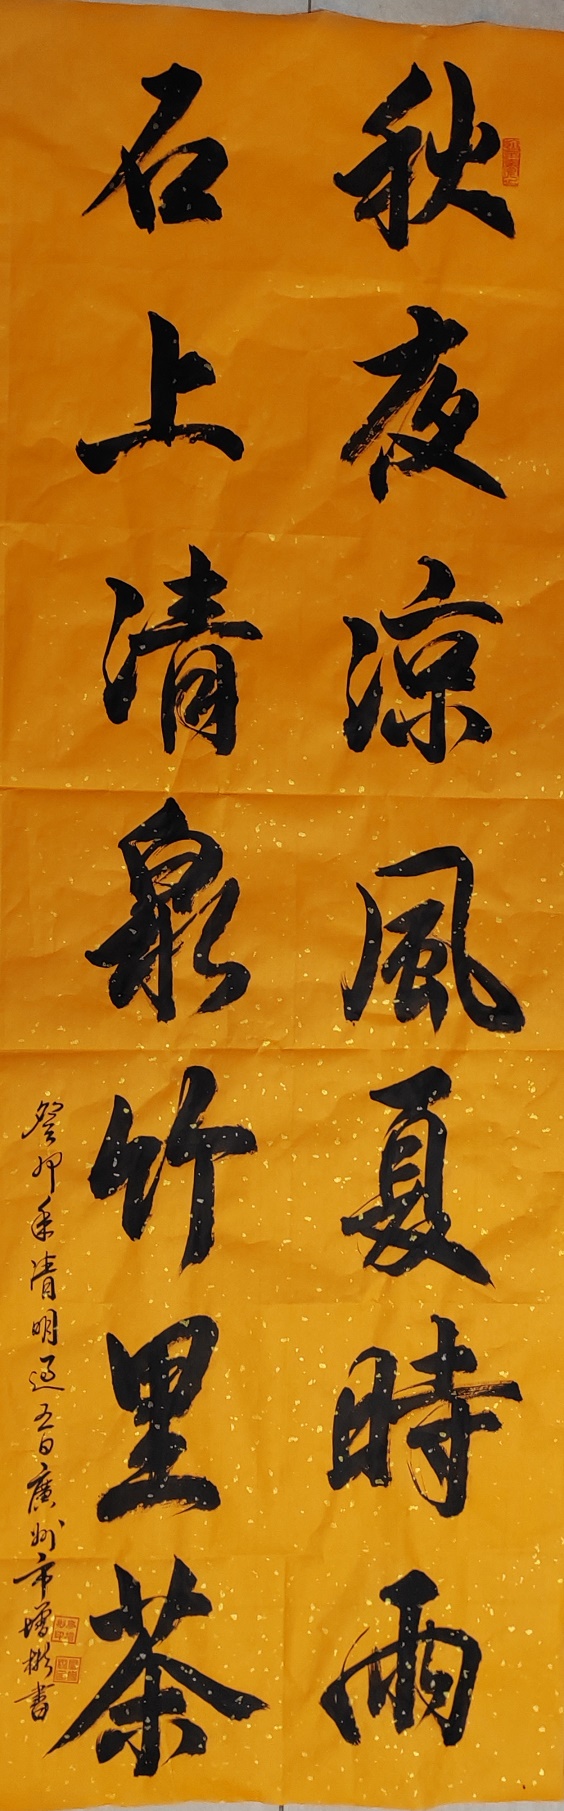 秋夜涼風夏時雨
石上清泉竹里茶
癸卯年清明過五日廣州市增彬書